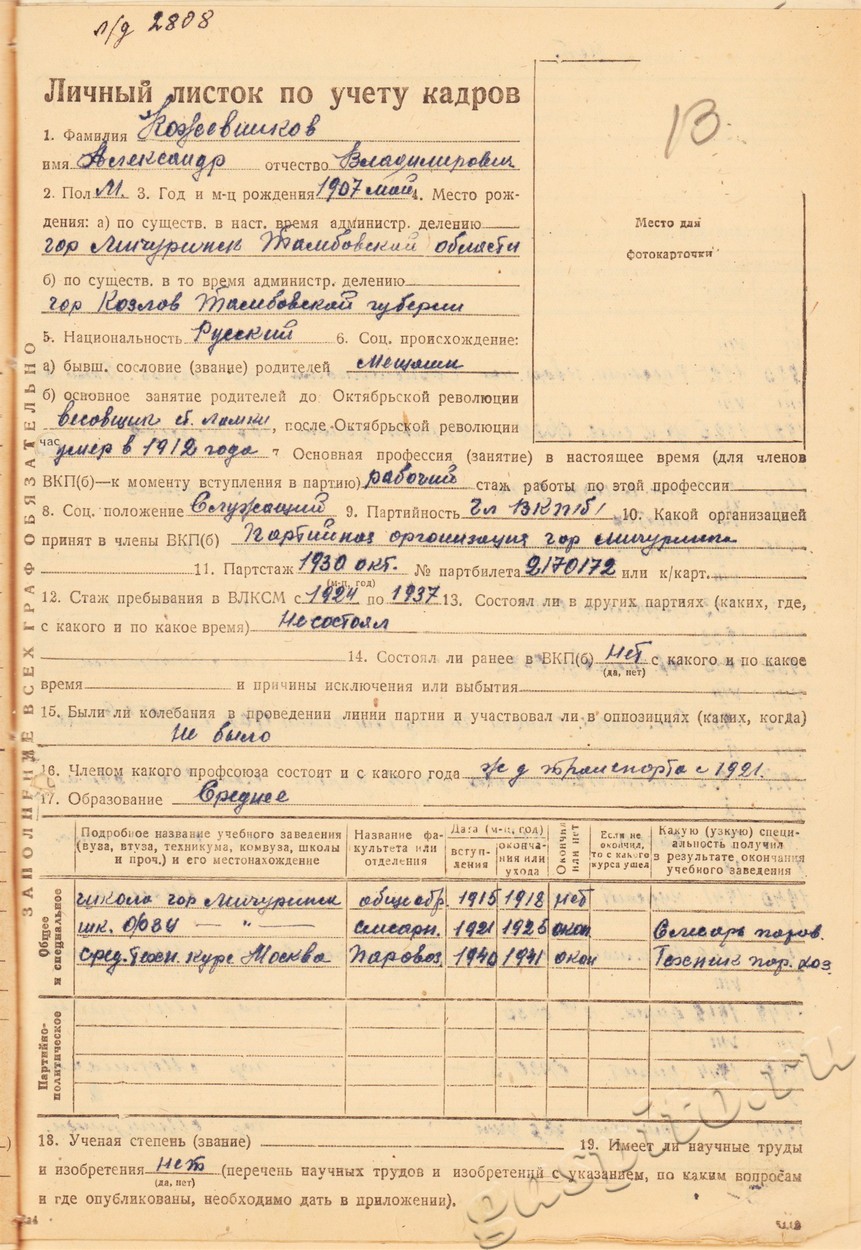 л/д 2808
13
Личный листок по учету кадров
1. Фамилия Кожевников
имя Александр отчество Владимирович
2. Пол М. 3. Год и м-ц рождения 1907 май 4. Место рож-
дения: а) по существ. в наст. время администр. делению
гор Мичуринск Тамбовский области
б) по существ. в то время администр. делению
гор Козлов Тамбовской губернии
5. Национальность Русский 6. Соц. происхождение:
а) бывш. сословие (звание) родителей мещане
б) основное занятие родителей до Октябрьской революции
весовщик ст. , после Октябрьской революции
умер в 1912 года 7 Основная профессия (занятие) в настоящее время (для членов
ВКП(б)—к моменту вступления в партию) рабочий стаж работы по этой профессии
8. Соц. положение Служащий 9. Партийность Чл ВКП(б) 10. Какой организацией
принят в члены ВКП(б) Партийная организация гор Мичуринска
11. Партстаж 1930 окт. № партбилета 2170172 или к/карт.
(м-ц, год)
12. Стаж пребывания в ВЛКСМ с 1924 по 1937 13. Состоял ли в других партиях (каких, где,
с какого и по какое время) Не состоял
14. Состоял ли ранее в ВКП(б) Нет с какого и по какое
(да, нет)
время и причины исключения или выбытия
15. Были ли колебания в проведении линии партии и участвовал ли в оппозициях (каких, когда)
Не было
16. Членом какого профсоюза состоит и с какого года ж д транспорта с 1921.
17. Образование Среднее
Подробное название учебного заведения (вуза, втуза, техникума, комвуза, школы и проч.) и его местонахождение
Название факультета или отделения
Дата (м-ц, год)
вступления
окончания или ухода
Окончил или нет
Если не окончил, то с какого курса ушел
Какую (узкую) специальность получил в результате окончания учебного заведения
Общее и специальное
школа гор Мичуринск общеобр. 1915 1918 нет
шк. ФЗУ — " — слесарн. 1921 1925 окон Слесарь паров.
сред. Техн. курс Москва Паровоз. 1940 1941 окон Техник пар. хоз
Партийно-политическое
18. Ученая степень (звание) 19. Имеет ли научные труды
и изобретения нет (перечень научных трудов и изобретений с указанием, по каким вопросам
(да, нет)
и где опубликованы, необходимо дать в приложении).
ЗАПОЛНЕНИЕ ВСЕХ ГРАФ ОБЯЗАТЕЛЬНО
Место для
фотокарточки
gaspito.ru